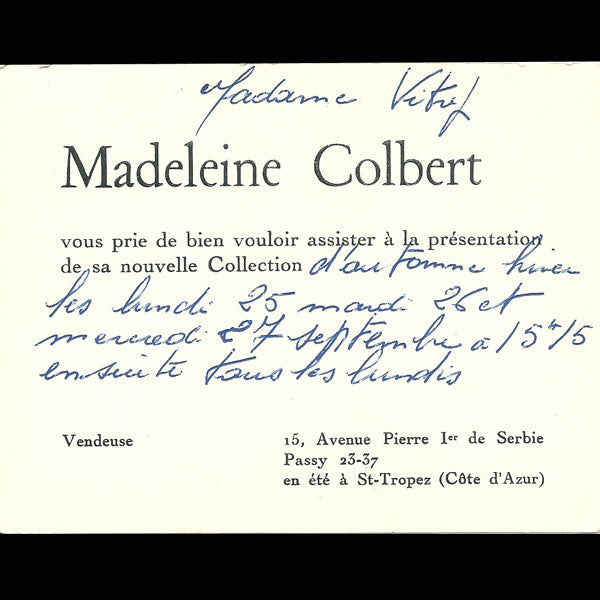 Madame
Madeleine Colbert
vous prie de bien vouloir assister à la présentation
de sa nouvelle Collection d'automne hiver
les lundi 25 mardi 26 et
mercredi 27 septembre à 15h15
ensuite tous les lundis
Vendeuse
15, Avenue Pierre Ier de Serbie
Passy 23-37
en été à St-Tropez (Côte d'Azur)